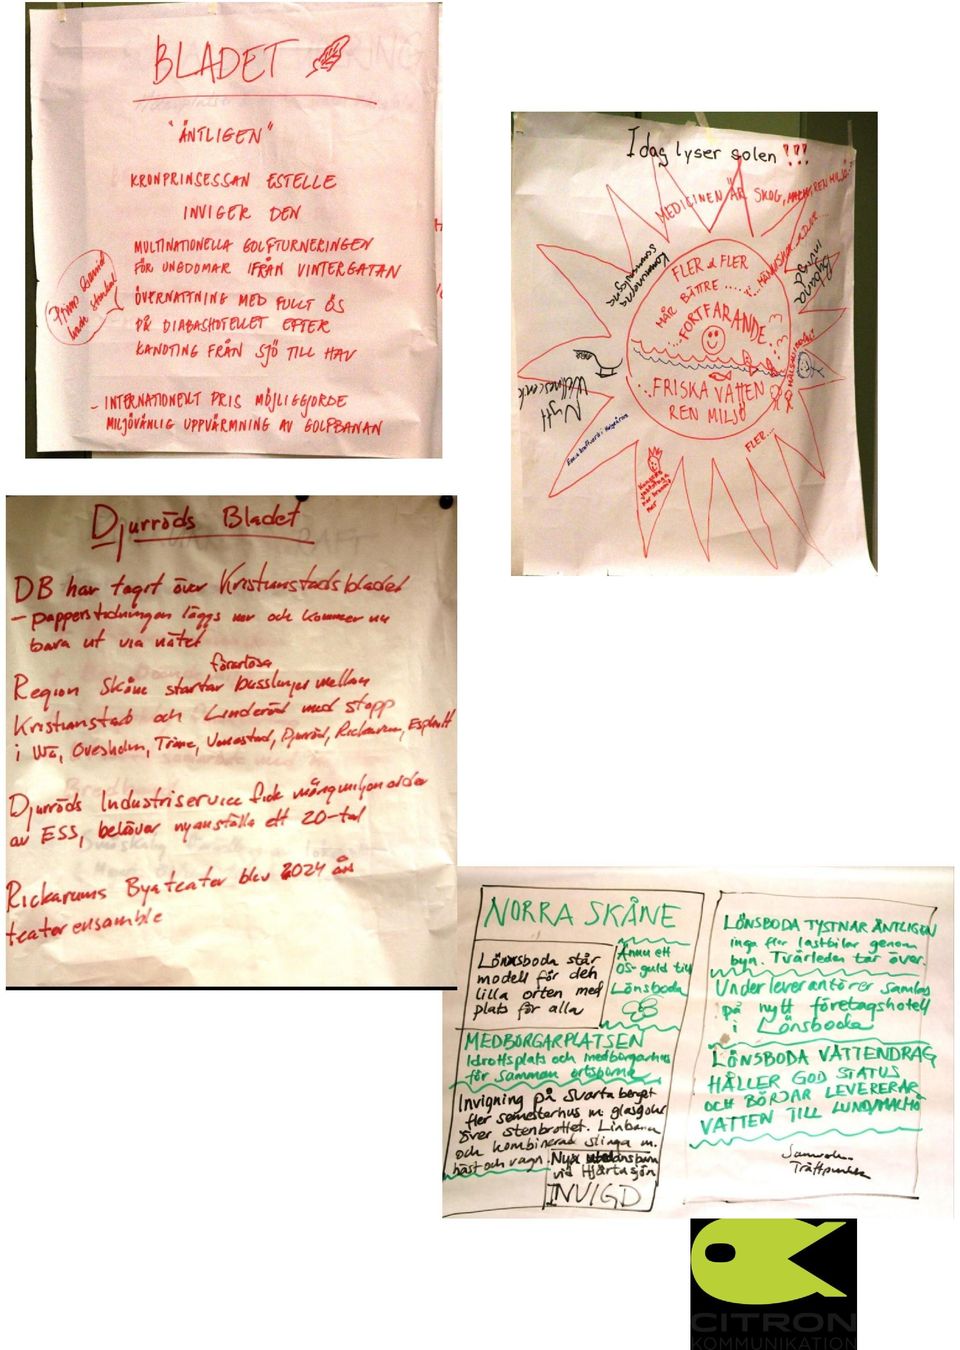 BLADET
"ÄNTLIGEN"
KRONPRINSESSAN ESTELLE
INVIGER DEN
MULTINATIONELLA GOLFTURNERINGEN
FÖR UNGDOMAR IFRÅN VINTERGATAN
ÖVERNATTNING MED FULLT ÖS
PÅ DIABASHOTELLET EFTER
KANOTING FRÅN SJÖ TILL HAV
- INTERNATIONELLT PRIS MÖJLIGGJORDE
MILJÖVÄNLIG UPPVÄRMNING AV GOLFBANAN
Idag lyser solen !!!
MEDICINEN ÄR SKOG, REN MILJÖ
Kommunerna
FLER & FLER
MÅR BÄTTRE.....
...FORTFARANDE
...FRISKA VATTEN
REN MILJÖ
Nytt
FLER...
Djurröds Bladet
DB har tagit över Kristianstadsbladet
- papperstidningen läggs ner och kommer nu
bara ut via nätet
förarlösa
Region Skåne startar busslinjer mellan
Kristianstad och Linderöd med stopp
i Vä, Ovesholm, Träne, Djurröd, Rickarum,
Djurröds Industriservice fick mångmiljonorder
av ESS, behöver nyanställa ett 20-tal
Rickarums Byateater blev 2024 års
teaterensamble
NORRA SKÅNE
Lönnsboda står
modell för den
lilla orten med
plats för alla
Ännu ett
OS-guld till
Lönsboda
MEDBORGARPLATSEN
Idrottsplats och medborgarhus
för samman ortsborna
Invigning på svarta berget
fler semesterhus m. glasgolv
över stenbrottet. Linbana
och kombinerad slinga m.
häst och vagn.
Nya
vid Hjärtasjön
INVIGD
LÖNSBODA TYSTNAR ÄNTLIGEN
inga fler lastbilar genom
byn. Tvärleden tar över.
Underleverantörer samlas
på nytt företagshotell
i Lönsboda
LÖNSBODA VATTENDRAG
HÅLLER GOD STATUS
OCH BÖRJAR LEVERERAR
VATTEN TILL LUND/MALMÖ
Träffpunkt
CITRON
KOMMUNIKATION